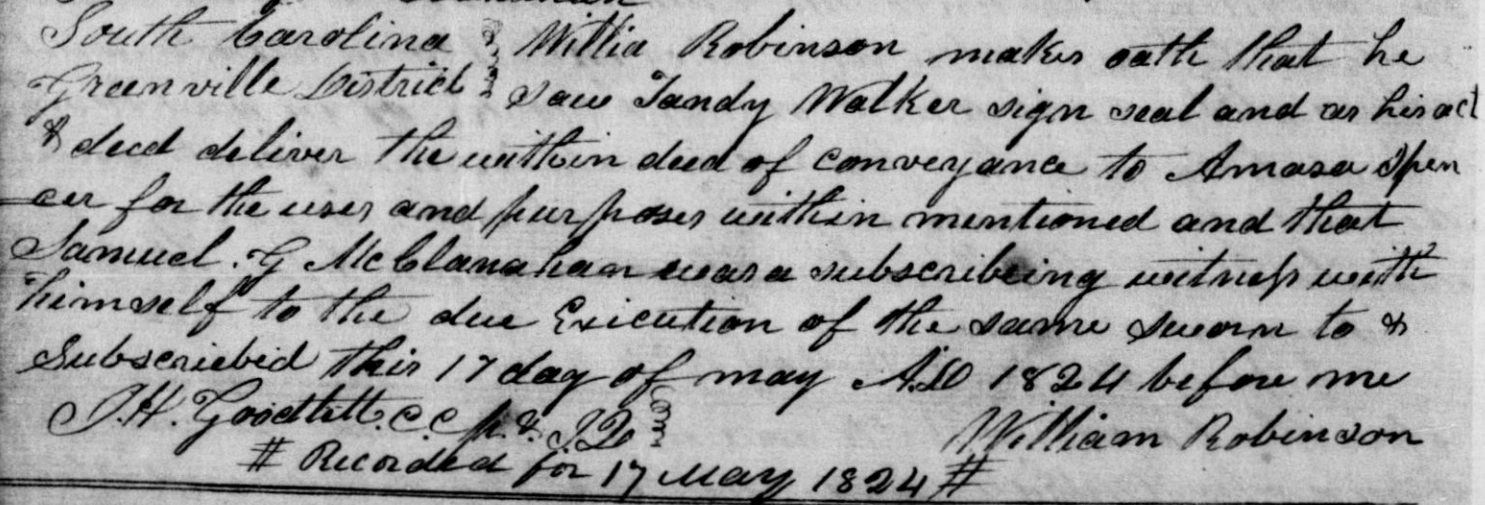 South Carolina } Willia Robinson makes oath that he
Greenville District } saw Tandy Walker sign seal and as his act
& deed deliver the within deed of conveyance to Amasa Spen
cer for the uses and purposes within mentioned and that
Samuel. G McClanahan was a subscribeing witness with
himself to the due Execution of the same sworn to &
Subscriebid this 17 day of may A.D 1824 before me
J.H. Goodlett. C.C. p. & J.Q William Robinson
# Recorded for 17 May 1824 #